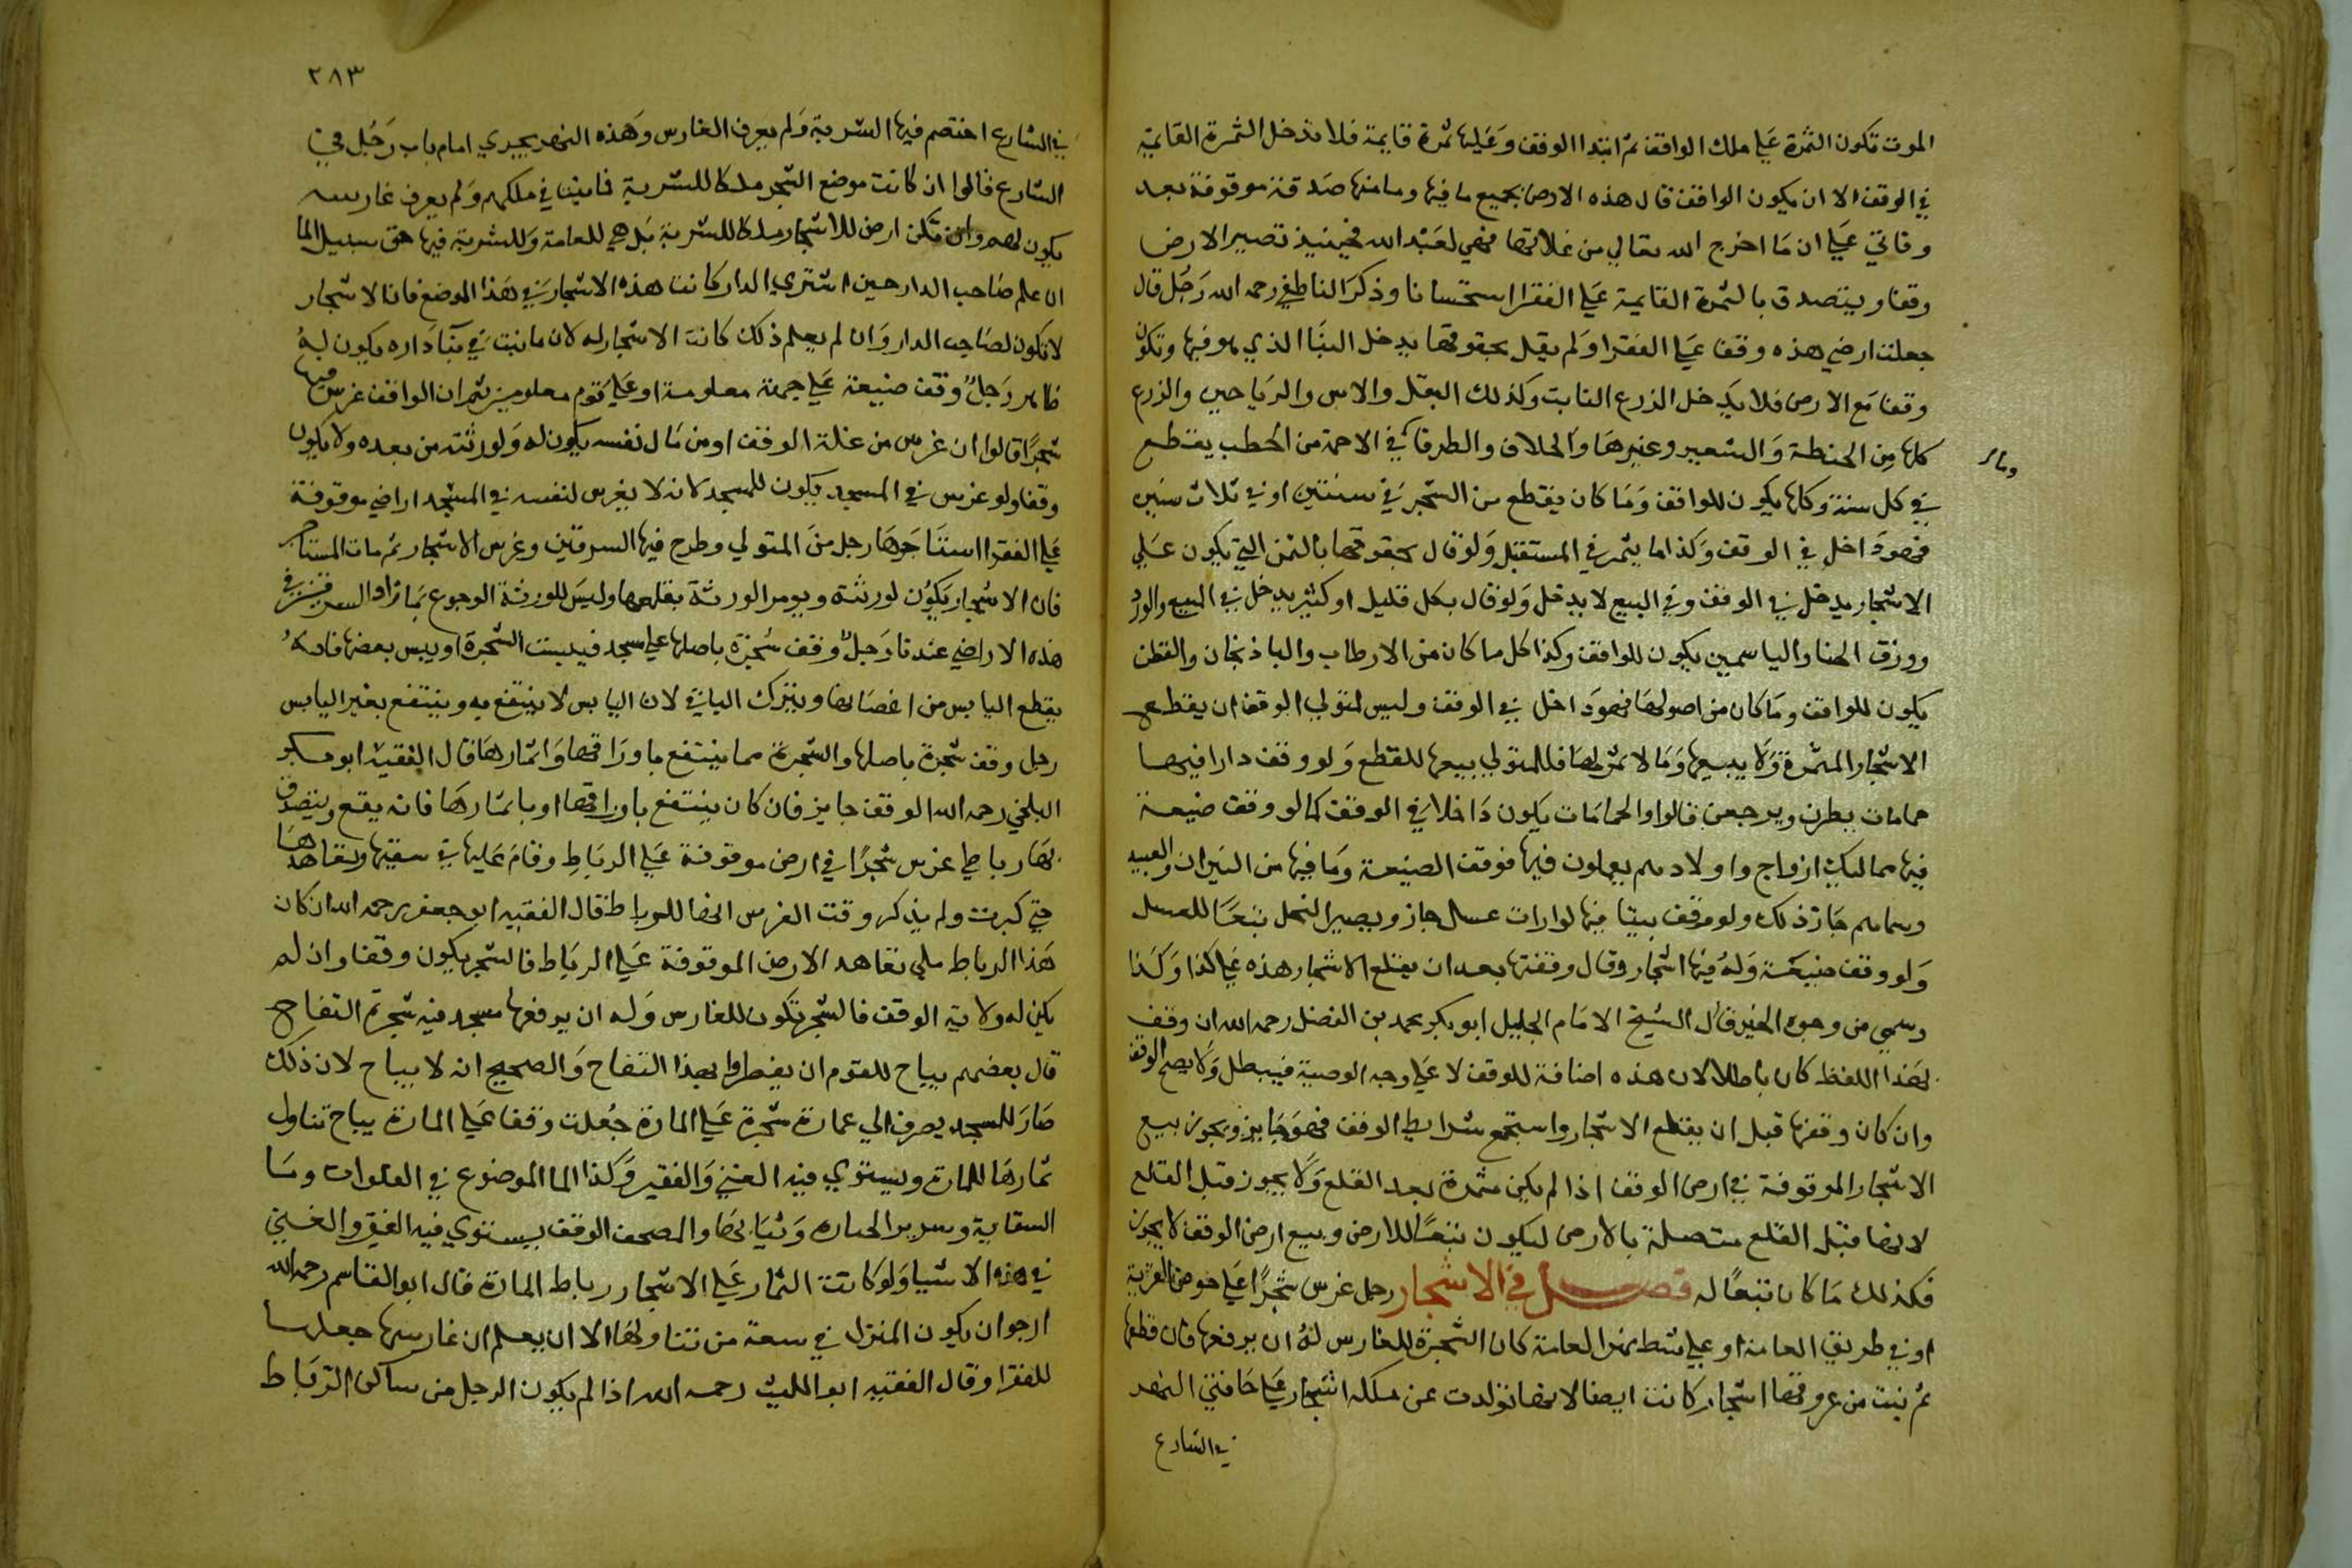 الموت تكون الثمرة على ملك الواقف ثم ابتدا الوقف وعليها ثمرة قايمة فلا تدخل الثمرة القايمة
في الوقف الا ان يكون الواقف قال هذه الارض بجميع ما فيها وما منها صدقة موقوفة بعد
وفاتي على ان ما اخرج الله تعالى من غلاتها فهي لعبد الله فحينيذ تصير الارض
وقفا ويتصدق بالثمرة القايمة على الفقرا استحسانا وذكر الناطفي رحمه الله رجل قال
جعلت ارضي هذه وقفا على الفقرا ولم يقل بحقوقها يدخل البنا الذي هو فيها وتكون
وقفا مع الارض فلا يدخل الزرع النابت وكذلك البقل والاس والرياحين والزرع
كلها من الحنطة والشعير وغيرها والخلاف والطرفا في الاجمة من الحطب يقطع
وما
في كل سنة وكلها يكون للواقف وما كان يقطع من الشجر في سنتين او في ثلاث سنين
فهو داخل في الوقف وكذا ما يثمر في المستقبل ولو قال بحقوقها بالثمن التي يكون على
الاشجار يدخل في الوقف وفي البيع لا يدخل ولو قال بكل قليل او كثير يدخل في البيع والورد
وورق الحنا والياسمين يكون للواقف وكذا كل ما كان من الارطاب والباذنجان والقطن
يكون للواقف وما كان من اصولها فهو داخل في الوقف وليس لمتولي الوقف ان يقطع
الاشجار المثمرة ولا يبيعها وما لا ثمر لها فللمتولي بيعها للقطع ولو وقف دارا فيها
حمامات يطرن ويرجعن قالوا والحمامات يكون داخلا في الوقف كما لو وقف ضيعة
فيها مماليك ازواج واولادهم يعملون فيها فوقف الضيعة وما فيها من الثيران والعبيد
وسماهم جاز ذلك ولو وقف بيتا فيها لوارات عسل جاز ويصير النحل تبعا للعسل
ولو وقف ضيعة وله فيها اشجار وقال وقفتها بعد ان يقلع الاشجار هذه على كذا وكذا
وسمي من وجوه الخير قال الشيخ الامام الجليل ابو بكر محمد بن الفضل رحمه الله ان وقف
لهذا اللفظ كان باطلا لان هذه اضافة للوقف لا على وجه الوصية فيبطل ولا يصح الوقف
وان كان وقفها قبل ان يقطع الاشجار واستجمع شرايط الوقف فهو جايز ويجوز بيع
الاشجار الموقوفة في ارض الوقف اذا لم يكن مثمرة بعد القلع ولا يجوز قبل القلع
لانها قبل القلع متصلة بالارض ليكون تبعا للارض وبيع ارض الوقف لا يجوز
فكذلك ما كان تبعا له فصل في الاشجار رجل غرس شجرا على حوض القرية
او في طريق العامة او على شط نهر العامة كان الشجرة للغارس له ان يرفعها فان قطعها
ثم نبت من عروقها اشجار كانت ايضا لانها تولدت عن ملكه اشجار على حافتي النهر
في الشارع
٢٨٣
في الشارع اختصم فيها الشربة ولم يعرف الغارس وهذه النهر يجري امام باب رجل في
الشارع قالوا ان كانت موضع الشجر ملكا للشربة فانبتنا في ملكهم ولم يعرف غارسه
يكون لهم وان تكن ارض للاشجار ملكا للشربة بل هي للعامة وللشربة فيها حق سبيل الما
ان علم صاحب الدار حين اشترى الدار كانت هذه الاشجار في هذا الموضع فان الاشجار
لا تكون لصاحب الدار وان لم يعلم ذلك كانت الاشجار له لان ما نبت في بنا داره يكون له
ظاهر رجل وقف ضيعة على جهة معلومة او على قوم معلومين ثم ان الواقف غرس فيها
شجرا قالوا ان غرس من غلة الوقف او من مال نفسه يكون له ولورثته من بعده ولا يكون
وقفا ولو غرس في المسجد يكون للمسجد لانه لا يغرس لنفسه في المسجد اراضي موقوفة
على الفقرا استاجرها رجل من المتولي وطرح فيها السرقين وغرس الاشجار ثم مات المستاجر
فان الاشجار يكون لورثته ويومر الورثة بقلعها وليس للورثة الرجوع بما زاد السرقين في
هذه الاراضي عندنا رجل وقف شجرة باصلها على مسجد فيبست الشجرة او يبس بعضها فانه
يقطع اليابس من اغصانها ويترك الباقي لان اليابس لا ينتفع به وينتفع بغير اليابس
رجل وقف شجرة باصلها والشجرة مما ينتفع باوراقها واثمارها قال الفقيه ابو بكر
البلخي رحمه الله الوقف جايز فان كان ينتفع باوراقها او باثمارها فانه يقع ويتصدق
بها رباطي غرس شجرا في ارض موقوفة على الرباط وقام عليها في سقيها وتعاهدها
حتى كبرت ولم يذكر وقت الغرس انها للرباط قال الفقيه ابو جعفر رحمه الله ان كان
هذا الرباط ملي تعاهد الارض الموقوفة على الرباط فالشجر يكون وقفا وان لم
يكن له ولاية الوقف فالشجر تكون للغارس وله ان يرفعها مسجد فيه شجرتم التفاح
قال بعضهم يباح للقوم ان يفطروا بهذا التفاح والصحيح انه لا يباح لان ذلك
صار للمسجد يصرف الى عمارة شجرة على المارة جعلت وقفا على المارة يباح تناول
ثمارها للمارة ويستوي فيه الغني والفقير وكذا الما الموضوع في الفلوات وما
السقاية وسرير الجنازة وثيابها والمصحف الوقف يستوي فيه الفقير والغني
في هذه الاشيا ولو كانت الثمار على الاشجار رباط المارة قال ابو القاسم رحمه الله
ارجو ان يكون المنزل في سعة من تناولها الا ان يعلم ان غارسها جعلها
للفقرا وقال الفقيه ابو الليث رحمه الله اذا لم يكون الرجل من ساكن الرباط